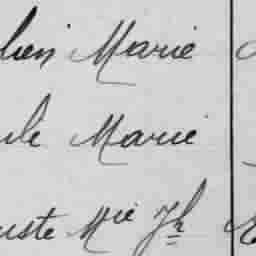 lien Marie
ule Marie
uste Mie Jh